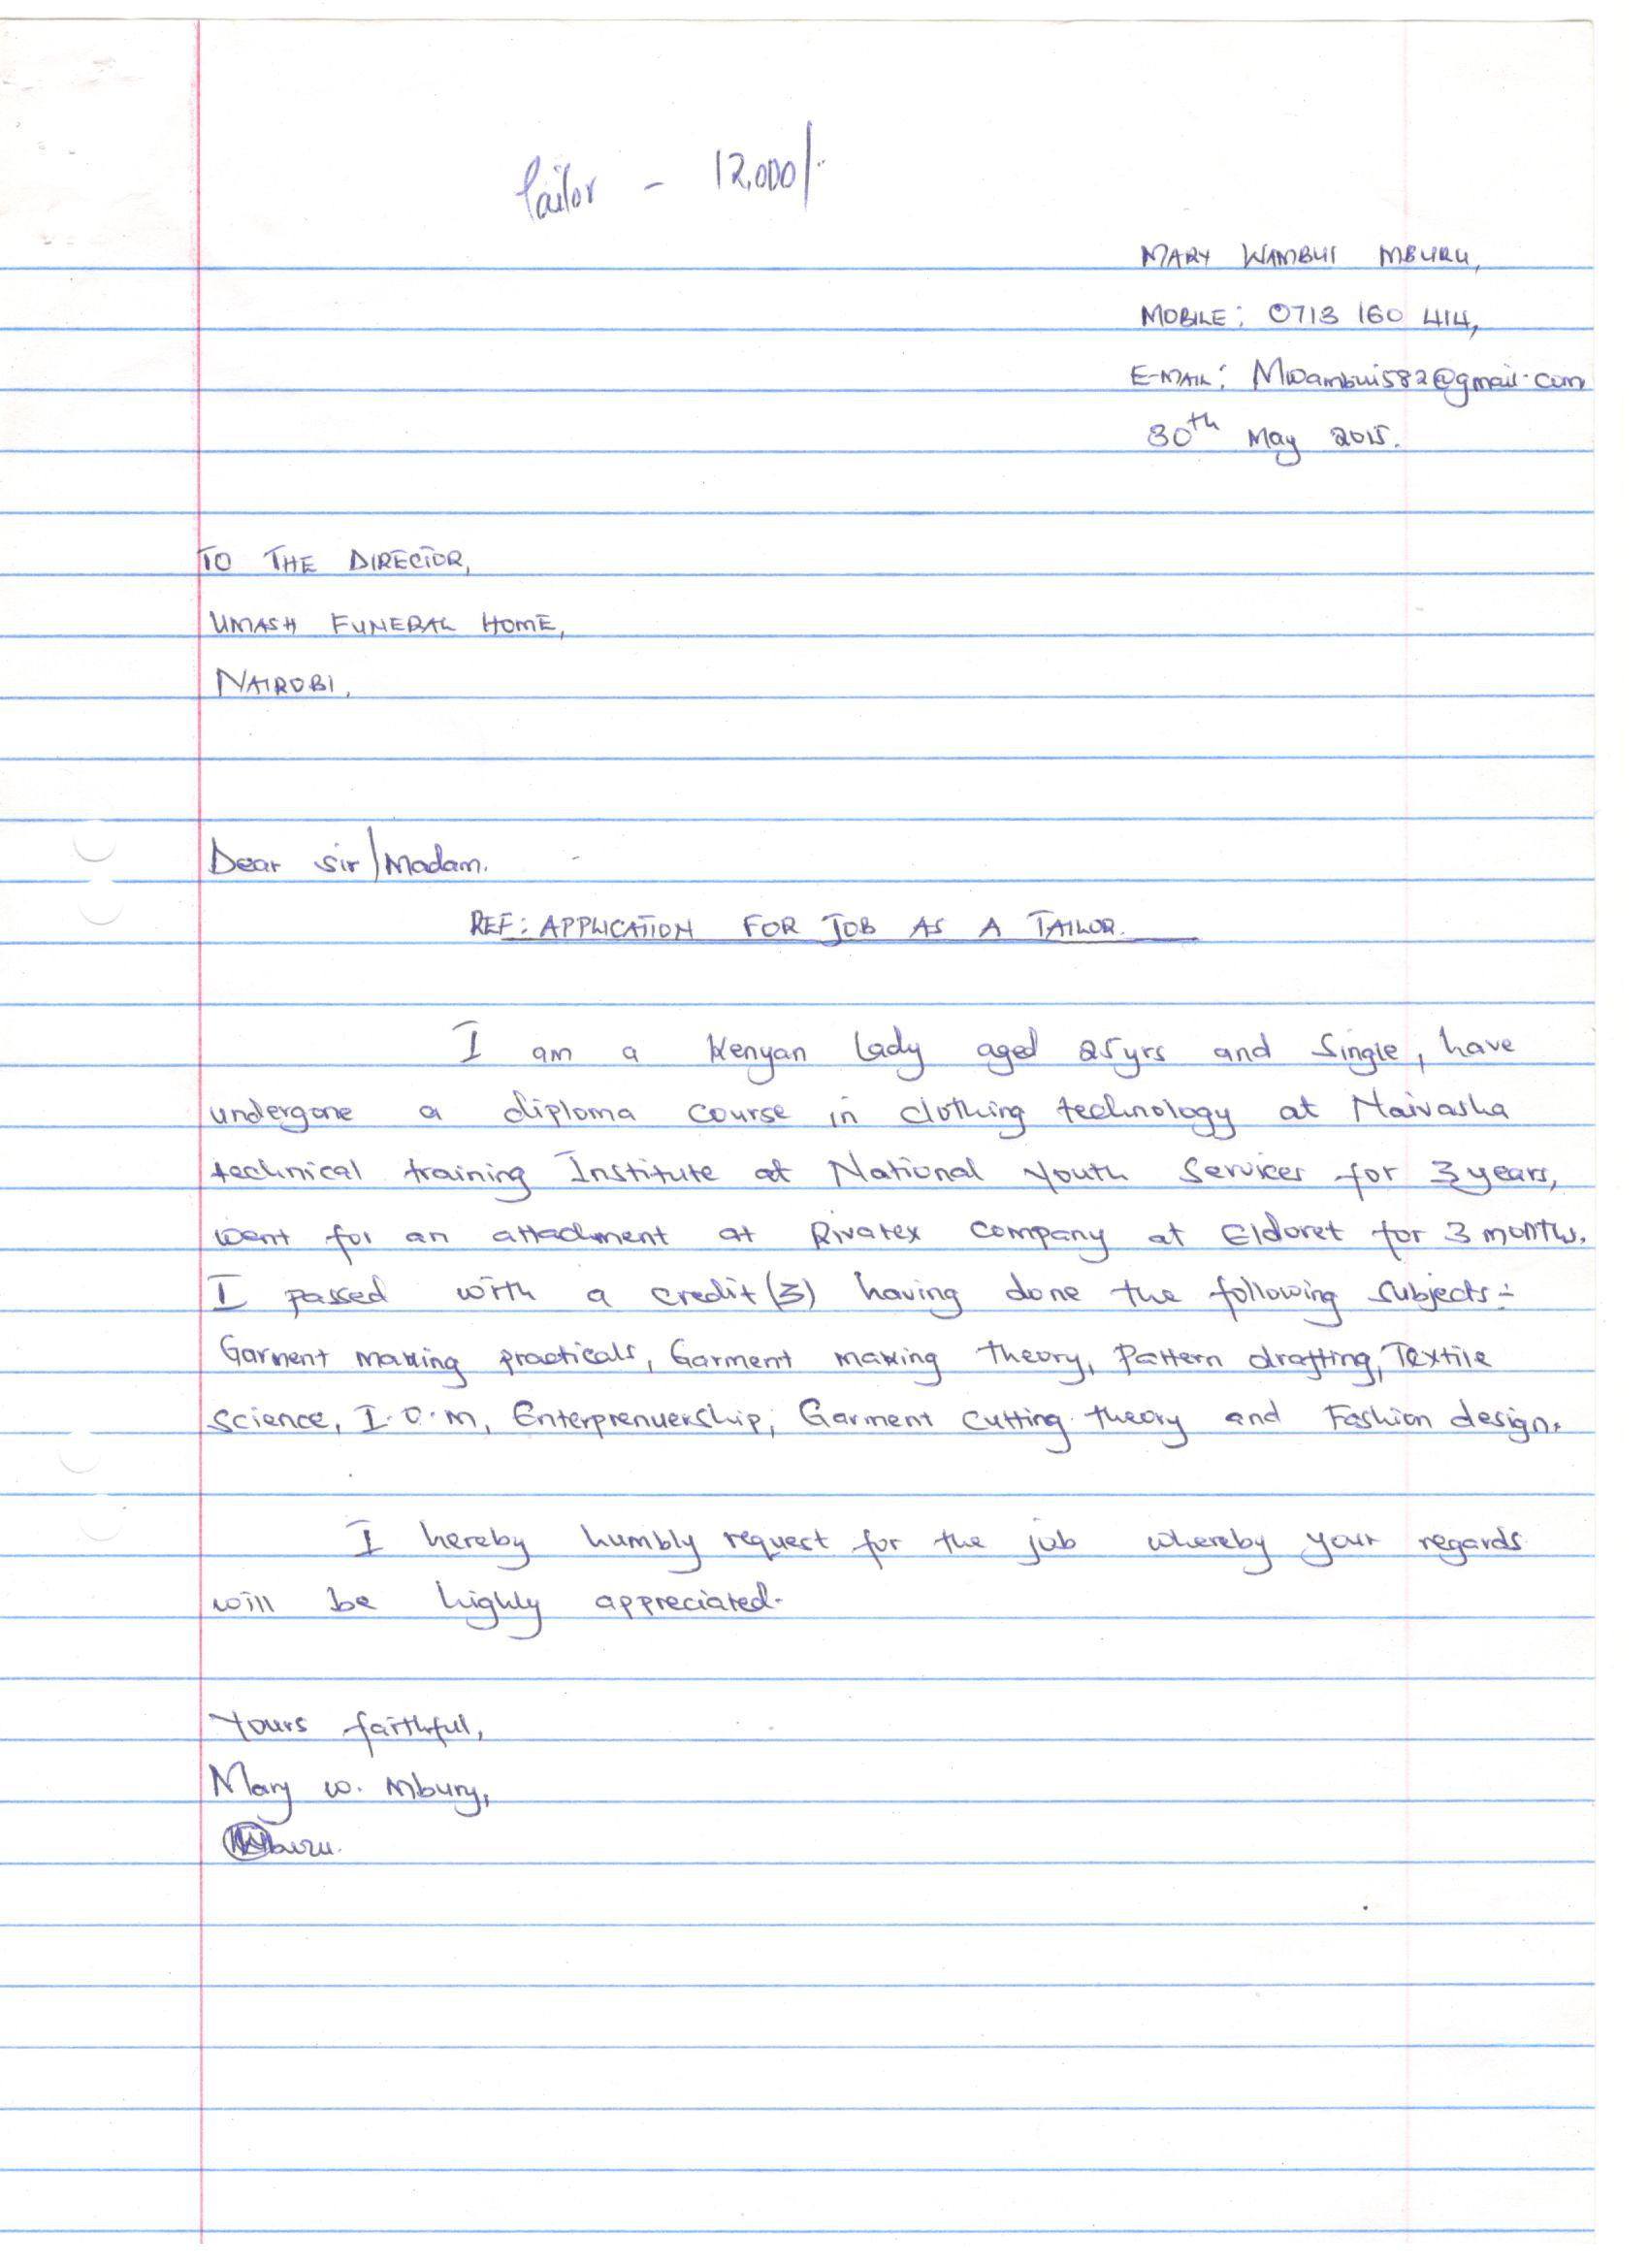 tailor - 12,000/-
MARY WAMBUI MBURU,
MOBILE: 0713 160 414,
E-MAIL: Mwambui582@gmail.com
30th May 2015.
TO THE DIRECTOR,
UMASH FUNERAL HOME,
NAIROBI.
Dear Sir/Madam.
REF: APPLICATION FOR JOB AS A TAILOR.
I am a Kenyan lady aged 25yrs and Single, have
undergone a diploma course in clothing technology at Naivasha
technical training Institute at National Youth Services for 3 years,
went for an attachment at Rivatex Company at Eldoret for 3 months.
I passed with a credit (3) having done the following subjects:-
Garment making practicals, Garment making theory, Pattern drafting, Textile
Science, I.O.M, Enterprenuership, Garment cutting theory and Fashion design.
I hereby humbly request for the job whereby your regards
will be highly appreciated.
Yours faithful,
Mary W. Mburu,